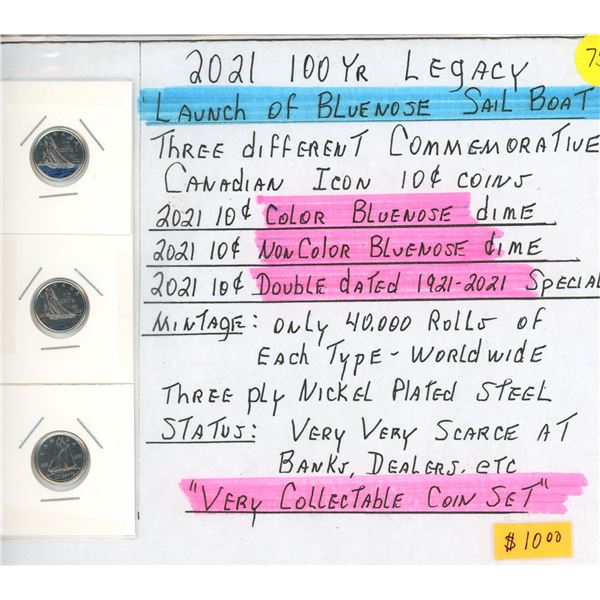 2021 100 Yr Legacy
Launch of Bluenose Sail Boat
Three different Commemorative
Canadian Icon 10¢ coins
2021 10¢ Color Bluenose dime
2021 10¢ NonColor Bluenose dime
2021 10¢ Double dated 1921-2021 Special
Mintage: only 40,000 Rolls of
Each Type - Worldwide
Three ply Nickel Plated Steel
Status: Very Very Scarce at
Banks, Dealers, etc
"Very Collectable Coin Set"
$10.00